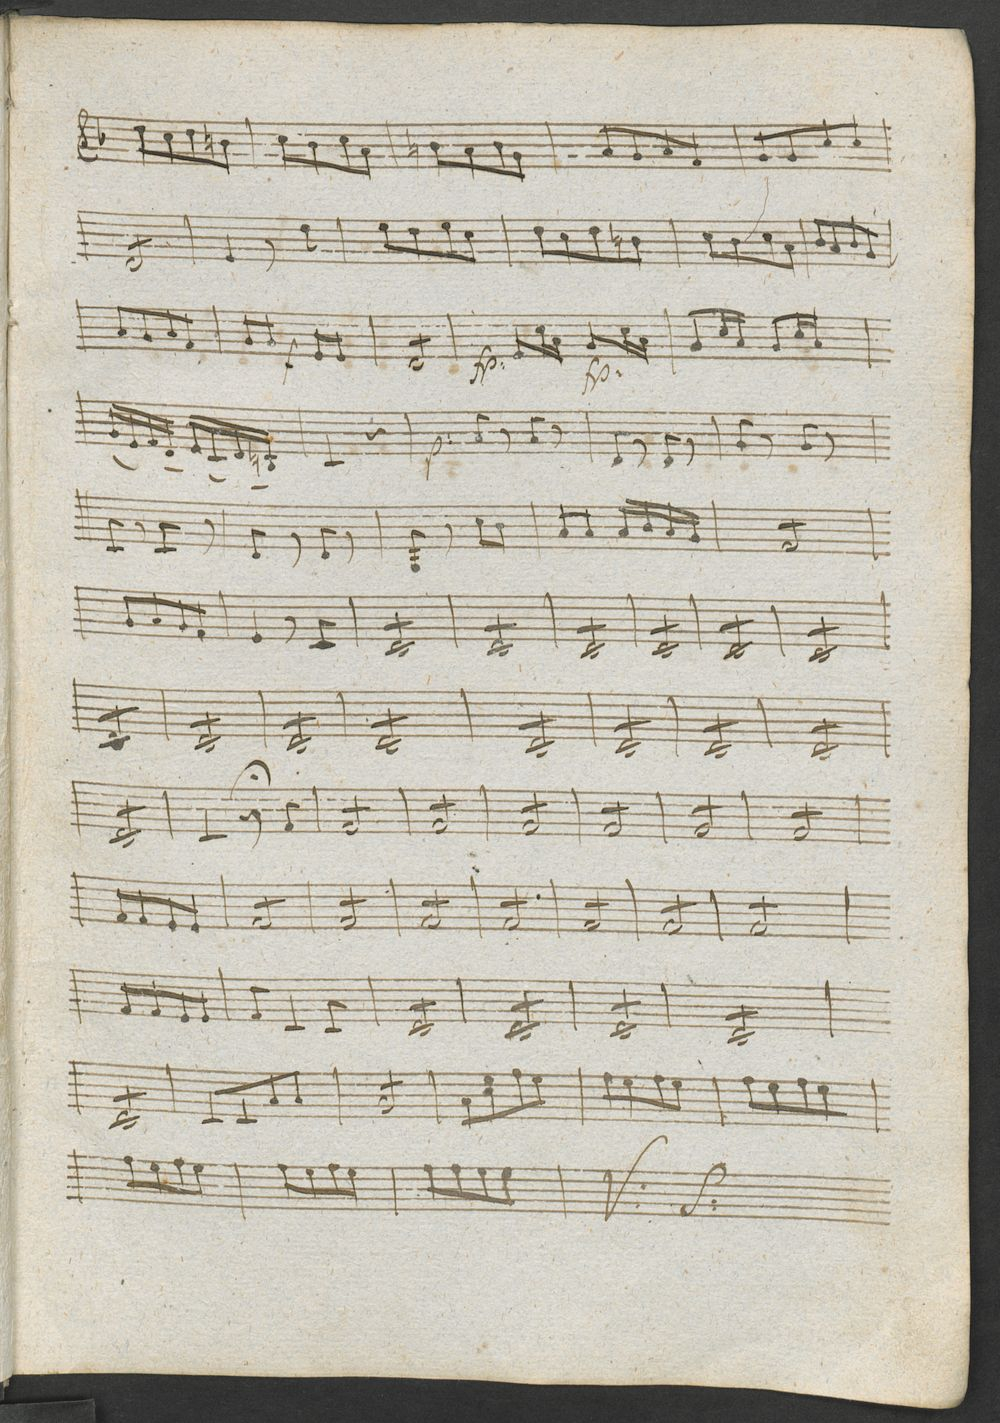 f fp. fp.
p.
V. S.